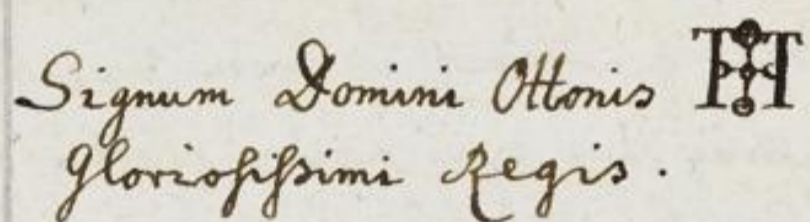 Signum Domini Ottonis
Gloriosissimi Regis.